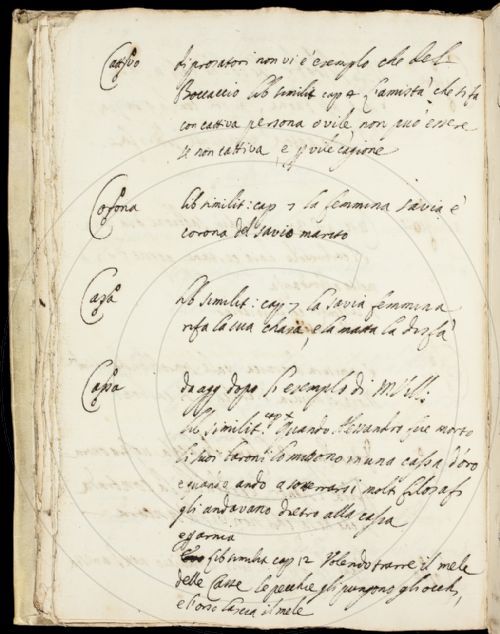 Cattivo di prosatori non vi è esempio che del
Boccaccio lib similit cap 4 L'amistà che si fa
con cattiva persona o vile non può essere
se non cattiva, e p vile cagione
Corona lib similit: cap 7 la femmina savia è
corona del savio marito
Casa lib similit: cap 7 la savia femmina
rifà la sua chasa, e la matta la disfà
Cassa da agg dopo l'esempio di M Vill.
lib similit. cap Quando Alessandro fue morto
li suoi baroni lo missono in una cassa d'oro
e quando andò a sotterrarsi molti filosafi
gli andavano dietro alla cassa
e
lib similit cap 12 Volendo trarre il mele
delle Casse le pecchie gli pungono gli occhi,
e l'orso lascia il mele